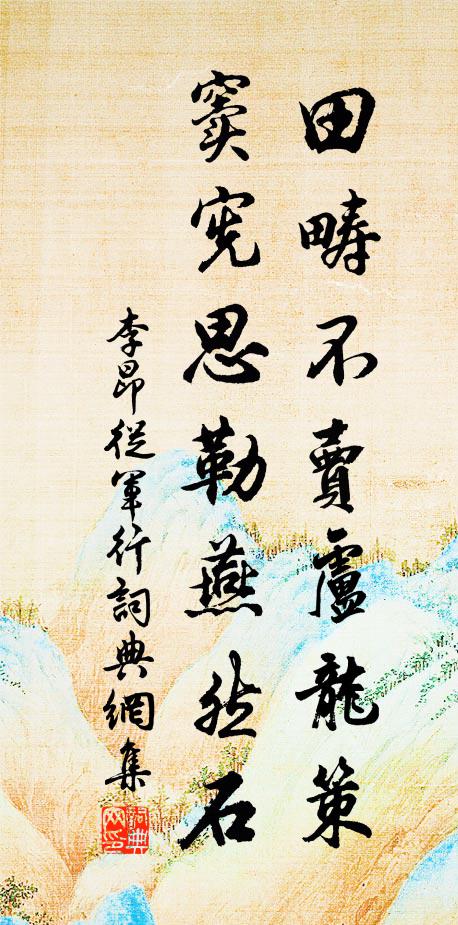 田疇不賣盧龍策
竇憲思勒燕然石
李昂從軍行詞典網集
詞典網印